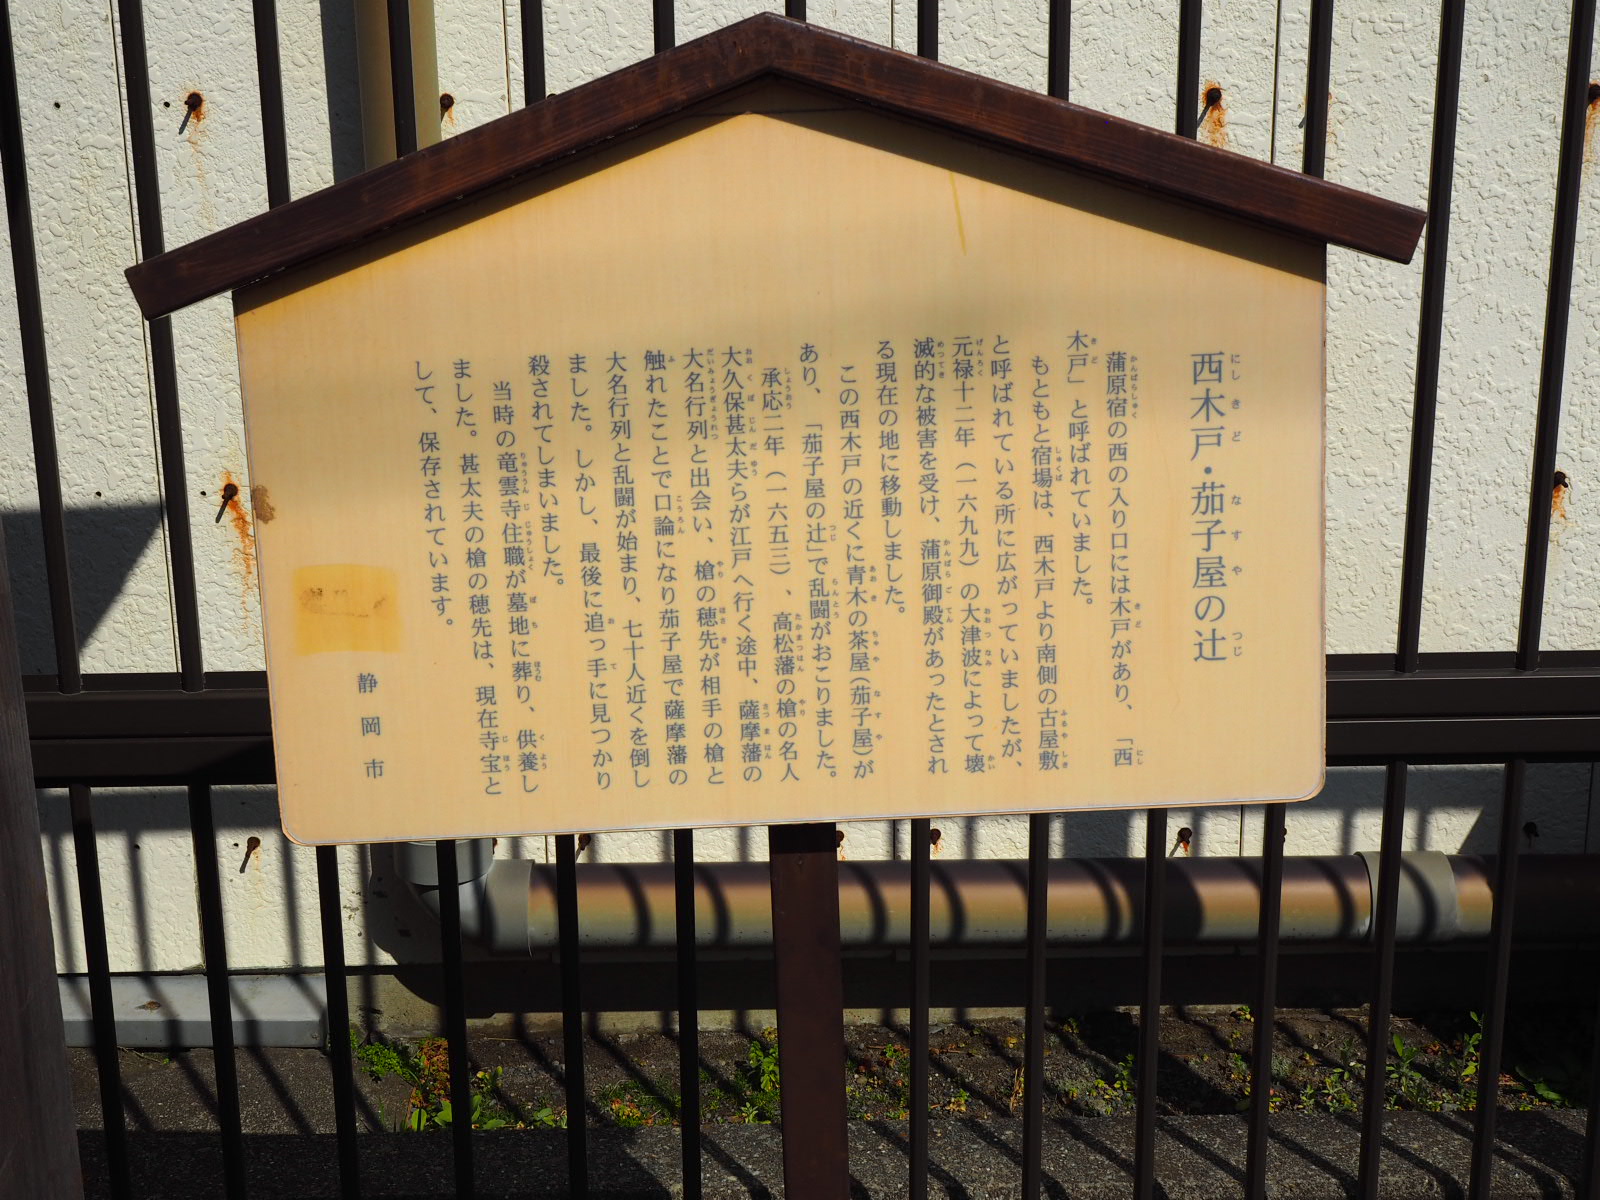 西木戸・茄子屋の辻
蒲原宿の西の入り口には木戸があり、「西
木戸」と呼ばれていました。
もともと宿場は、西木戸より南側の古屋敷
と呼ばれている所に広がっていましたが、
元禄十二年（一六九九）の大津波によって壊
滅的な被害を受け、蒲原御殿があったとされ
る現在の地に移動しました。
この西木戸の近くに青木の茶屋（茄子屋）が
あり、「茄子屋の辻」で乱闘がおこりました。
承応二年（一六五三）、高松藩の槍の名人
大久保甚太夫らが江戸へ行く途中、薩摩藩の
大名行列と出会い、槍の穂先が相手の槍と
触れたことで口論になり茄子屋で薩摩藩の
大名行列と乱闘が始まり、七十人近くを倒し
ました。しかし、最後に追っ手に見つかり
殺されてしまいました。
当時の竜雲寺住職が墓地に葬り、供養し
ました。甚太夫の槍の穂先は、現在寺宝と
して、保存されています。
静岡市